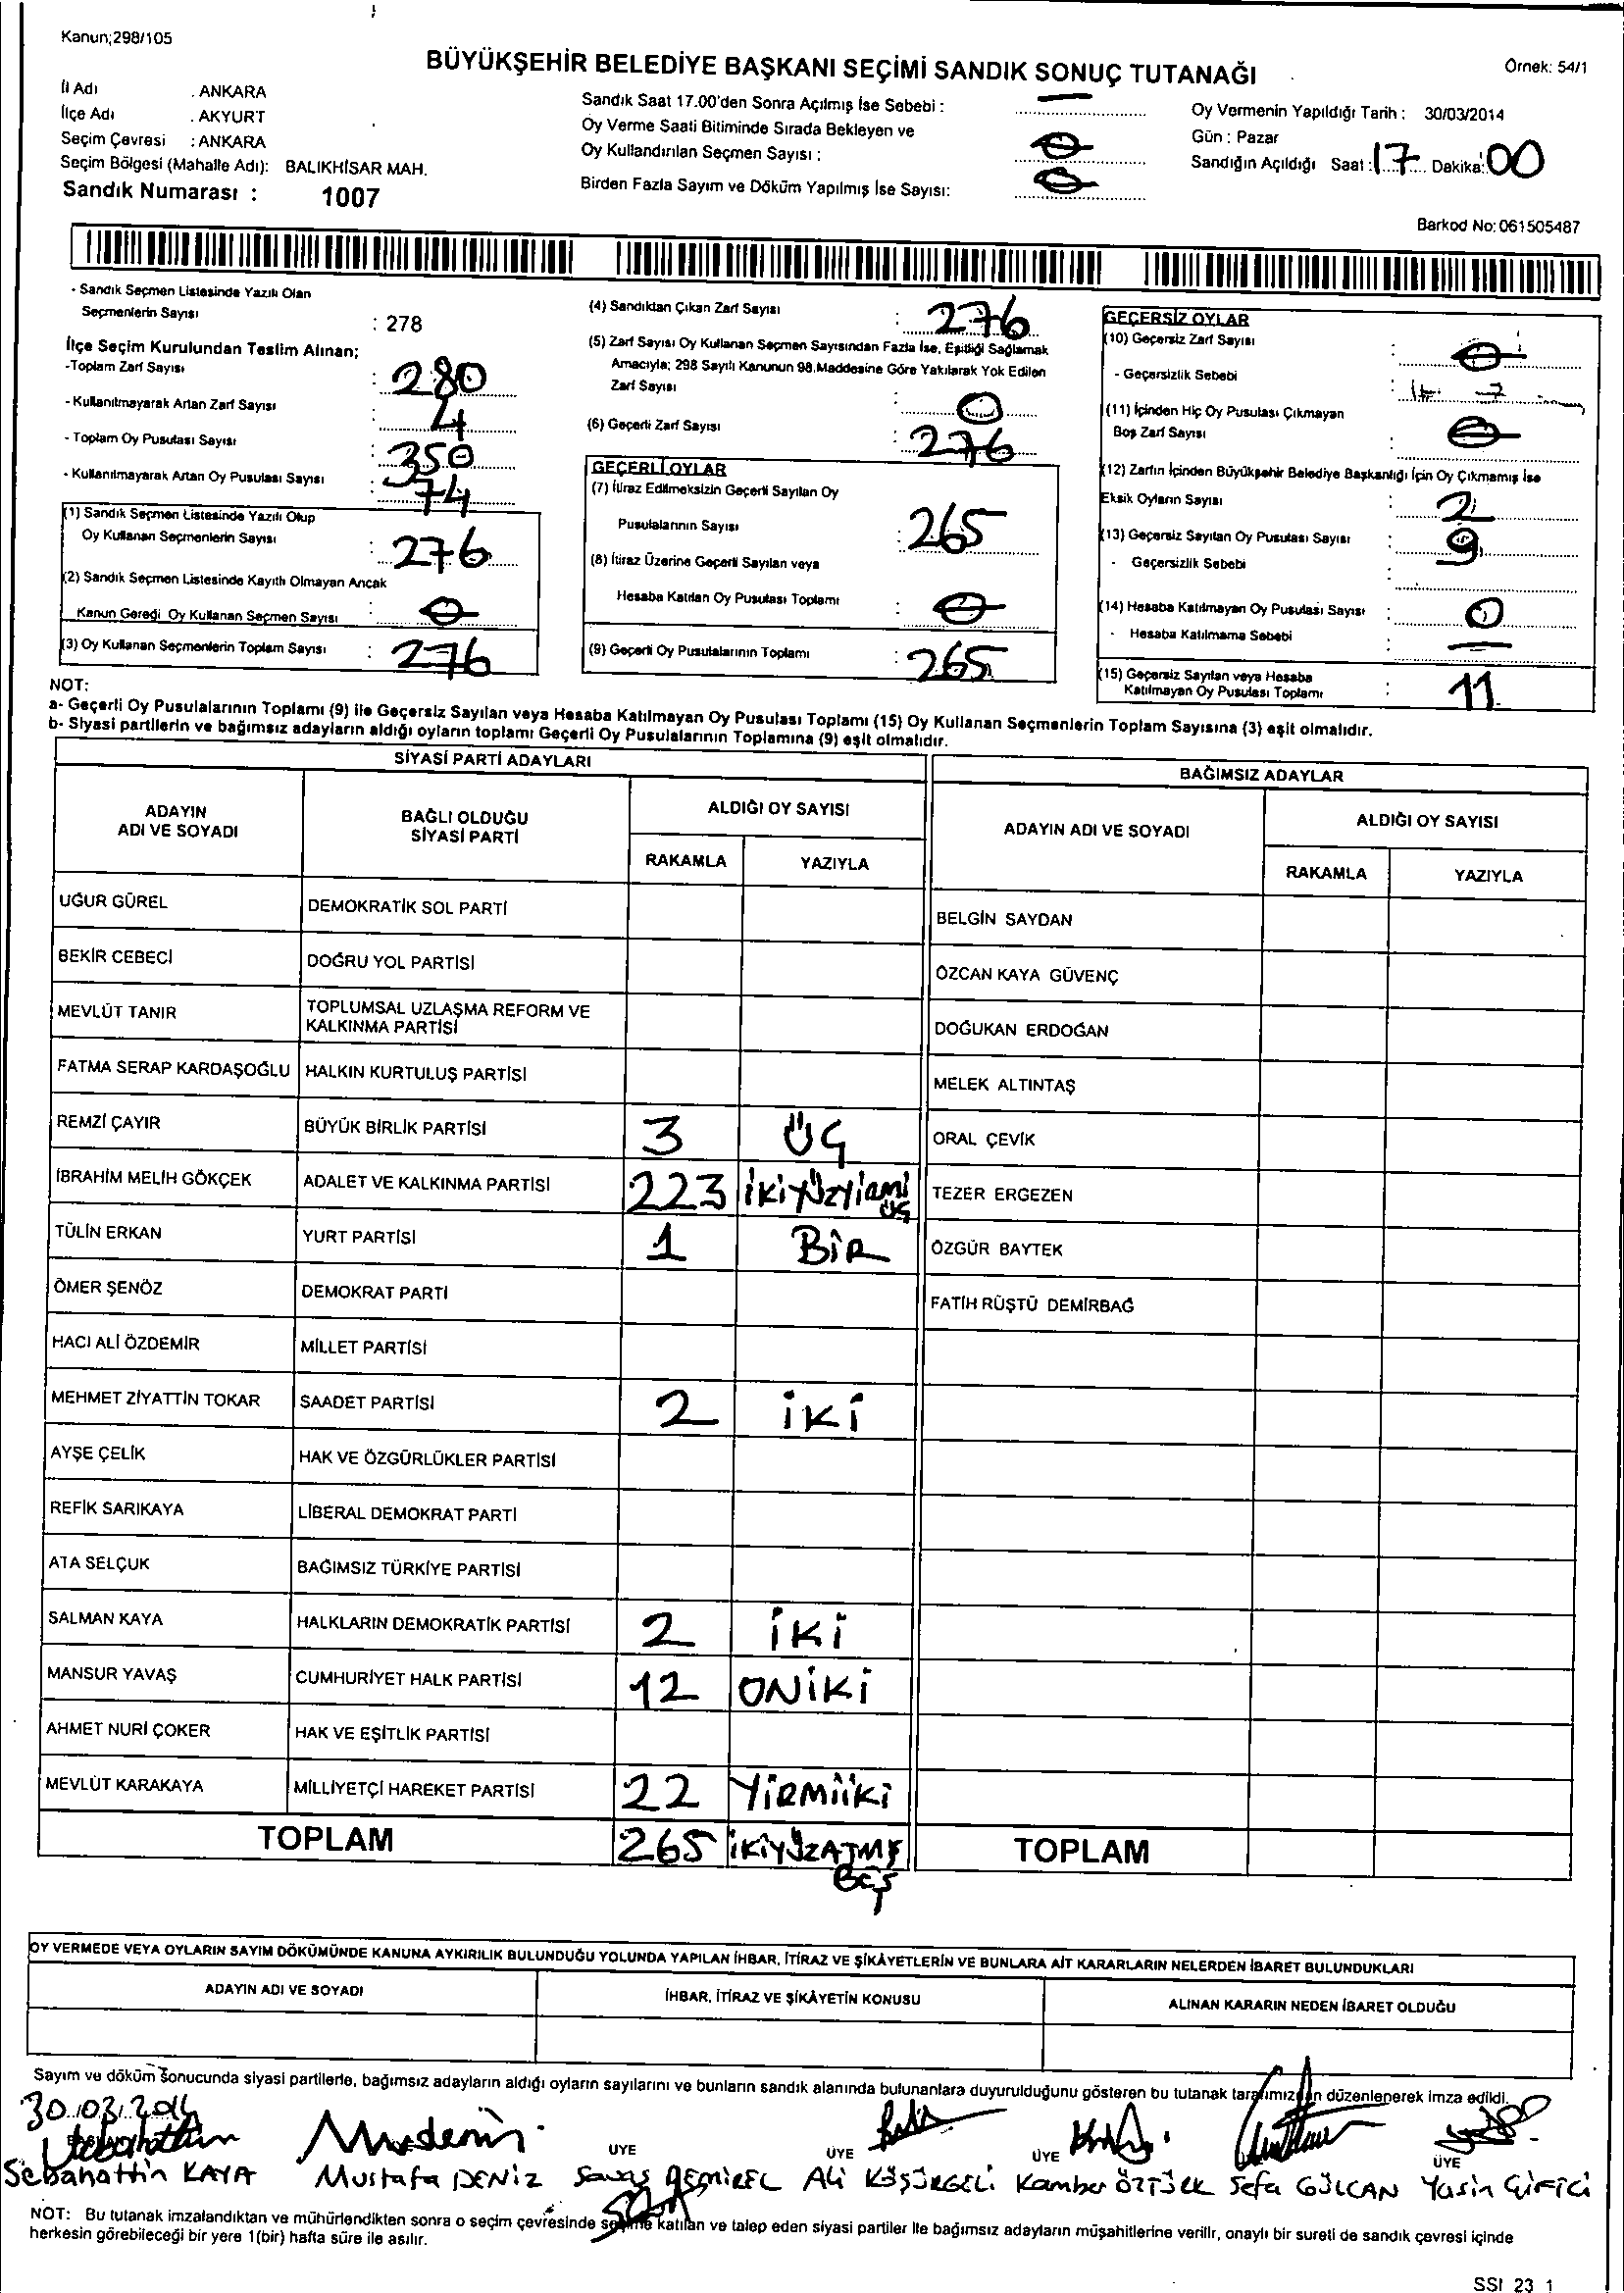 Kanun;298/105
BÜYÜKŞEHİR BELEDİYE BAŞKANI SEÇİMİ SANDIK SONUÇ TUTANAĞI
Örnek: 54/1
İl Adı : ANKARA
İlçe Adı : AKYURT
Seçim Çevresi : ANKARA
Seçim Bölgesi (Mahalle Adı): BALIKHİSAR MAH.
Sandık Numarası : 1007
Sandık Saat 17.00'den Sonra Açılmış İse Sebebi : —
Oy Verme Saati Bitiminde Sırada Bekleyen ve
Oy Kullandırılan Seçmen Sayısı : 0
Birden Fazla Sayım ve Döküm Yapılmış İse Sayısı: 0
Oy Vermenin Yapıldığı Tarih : 30/03/2014
Gün : Pazar
Sandığın Açıldığı Saat : 17 Dakika: 00
Barkod No: 061505487
- Sandık Seçmen Listesinde Yazılı Olan
Seçmenlerin Sayısı : 278
İlçe Seçim Kurulundan Teslim Alınan;
-Toplam Zarf Sayısı : 280
- Kullanılmayarak Artan Zarf Sayısı : 4
- Toplam Oy Pusulası Sayısı : 350
- Kullanılmayarak Artan Oy Pusulası Sayısı : 74
(1) Sandık Seçmen Listesinde Yazılı Olup
Oy Kullanan Seçmenlerin Sayısı : 276
(2) Sandık Seçmen Listesinde Kayıtlı Olmayan Ancak
Kanun Gereği Oy Kullanan Seçmen Sayısı : 0
(3) Oy Kullanan Seçmenlerin Toplam Sayısı : 276
(4) Sandıktan Çıkan Zarf Sayısı : 276
(5) Zarf Sayısı Oy Kullanan Seçmen Sayısından Fazla İse, Eşitliği Sağlamak
Amacıyla; 298 Sayılı Kanunun 98.Maddesine Göre Yakılarak Yok Edilen
Zarf Sayısı : 0
(6) Geçerli Zarf Sayısı : 276
GEÇERLİ OYLAR
(7) İtiraz Edilmeksizin Geçerli Sayılan Oy
Pusulalarının Sayısı : 265
(8) İtiraz Üzerine Geçerli Sayılan veya
Hesaba Katılan Oy Pusulası Toplamı : 0
(9) Geçerli Oy Pusulalarının Toplamı : 265
GEÇERSİZ OYLAR
(10) Geçersiz Zarf Sayısı : 0
- Geçersizlik Sebebi :
(11) İçinden Hiç Oy Pusulası Çıkmayan
Boş Zarf Sayısı : 0
(12) Zarfın İçinden Büyükşehir Belediye Başkanlığı İçin Oy Çıkmamış İse
Eksik Oyların Sayısı : 2
(13) Geçersiz Sayılan Oy Pusulası Sayısı : 9
- Geçersizlik Sebebi :
(14) Hesaba Katılmayan Oy Pusulası Sayısı : 0
- Hesaba Katılmama Sebebi : —
(15) Geçersiz Sayılan veya Hesaba
Katılmayan Oy Pusulası Toplamı : 11
NOT:
a- Geçerli Oy Pusulalarının Toplamı (9) ile Geçersiz Sayılan veya Hesaba Katılmayan Oy Pusulası Toplamı (15) Oy Kullanan Seçmenlerin Toplam Sayısına (3) eşit olmalıdır.
b- Siyasi partilerin ve bağımsız adayların aldığı oyların toplamı Geçerli Oy Pusulalarının Toplamına (9) eşit olmalıdır.
SİYASİ PARTİ ADAYLARI
BAĞIMSIZ ADAYLAR
ADAYIN ADI VE SOYADI BAĞLI OLDUĞU SİYASİ PARTİ ALDIĞI OY SAYISI ADAYIN ADI VE SOYADI ALDIĞI OY SAYISI
RAKAMLA YAZIYLA RAKAMLA YAZIYLA
UĞUR GÜREL DEMOKRATİK SOL PARTİ BELGİN SAYDAN
BEKİR CEBECİ DOĞRU YOL PARTİSİ ÖZCAN KAYA GÜVENÇ
MEVLÜT TANIR TOPLUMSAL UZLAŞMA REFORM VE KALKINMA PARTİSİ DOĞUKAN ERDOĞAN
FATMA SERAP KARDAŞOĞLU HALKIN KURTULUŞ PARTİSİ MELEK ALTINTAŞ
REMZİ ÇAYIR BÜYÜK BİRLİK PARTİSİ 3 ÜÇ ORAL ÇEVİK
İBRAHİM MELİH GÖKÇEK ADALET VE KALKINMA PARTİSİ 223 İKİYÜZYİRMİ ÜÇ TEZER ERGEZEN
TÜLİN ERKAN YURT PARTİSİ 1 BİR ÖZGÜR BAYTEK
ÖMER ŞENÖZ DEMOKRAT PARTİ FATİH RÜŞTÜ DEMİRBAĞ
HACI ALİ ÖZDEMİR MİLLET PARTİSİ
MEHMET ZİYATTİN TOKAR SAADET PARTİSİ 2 İKİ
AYŞE ÇELİK HAK VE ÖZGÜRLÜKLER PARTİSİ
REFİK SARIKAYA LİBERAL DEMOKRAT PARTİ
ATA SELÇUK BAĞIMSIZ TÜRKİYE PARTİSİ
SALMAN KAYA HALKLARIN DEMOKRATİK PARTİSİ 2 İKİ
MANSUR YAVAŞ CUMHURİYET HALK PARTİSİ 12 ONİKİ
AHMET NURİ ÇOKER HAK VE EŞİTLİK PARTİSİ
MEVLÜT KARAKAYA MİLLİYETÇİ HAREKET PARTİSİ 22 YİRMİİKİ
TOPLAM 265 İKİYÜZATMŞ BEŞ TOPLAM
OY VERMEDE VEYA OYLARIN SAYIM DÖKÜMÜNDE KANUNA AYKIRILIK BULUNDUĞU YOLUNDA YAPILAN İHBAR, İTİRAZ VE ŞİKÂYETLERİN VE BUNLARA AİT KARARLARIN NELERDEN İBARET BULUNDUKLARI
ADAYIN ADI VE SOYADI İHBAR, İTİRAZ VE ŞİKÂYETİN KONUSU ALINAN KARARIN NEDEN İBARET OLDUĞU
Sayım ve döküm sonucunda siyasi partilerle, bağımsız adayların aldığı oyların sayılarını ve bunların sandık alanında bulunanlara duyurulduğunu gösteren bu tutanak tarafımızdan düzenlenerek imza edildi.
30.03.2014
ÜYE ÜYE ÜYE ÜYE
Sebahattin KAYA Mustafa DENİZ Savaş DEMİREL Ali KÖŞÜRGELİ Kamber ÖZTÜRK Sefa GÜLCAN Yasin ÇİFİCİ
NOT: Bu tutanak imzalandıktan ve mühürlendikten sonra o seçim çevresinde seçime katılan ve talep eden siyasi partiler ile bağımsız adayların müşahitlerine verilir, onaylı bir sureti de sandık çevresi içinde
herkesin görebileceği bir yere 1(bir) hafta süre ile asılır.
SSI 23 1